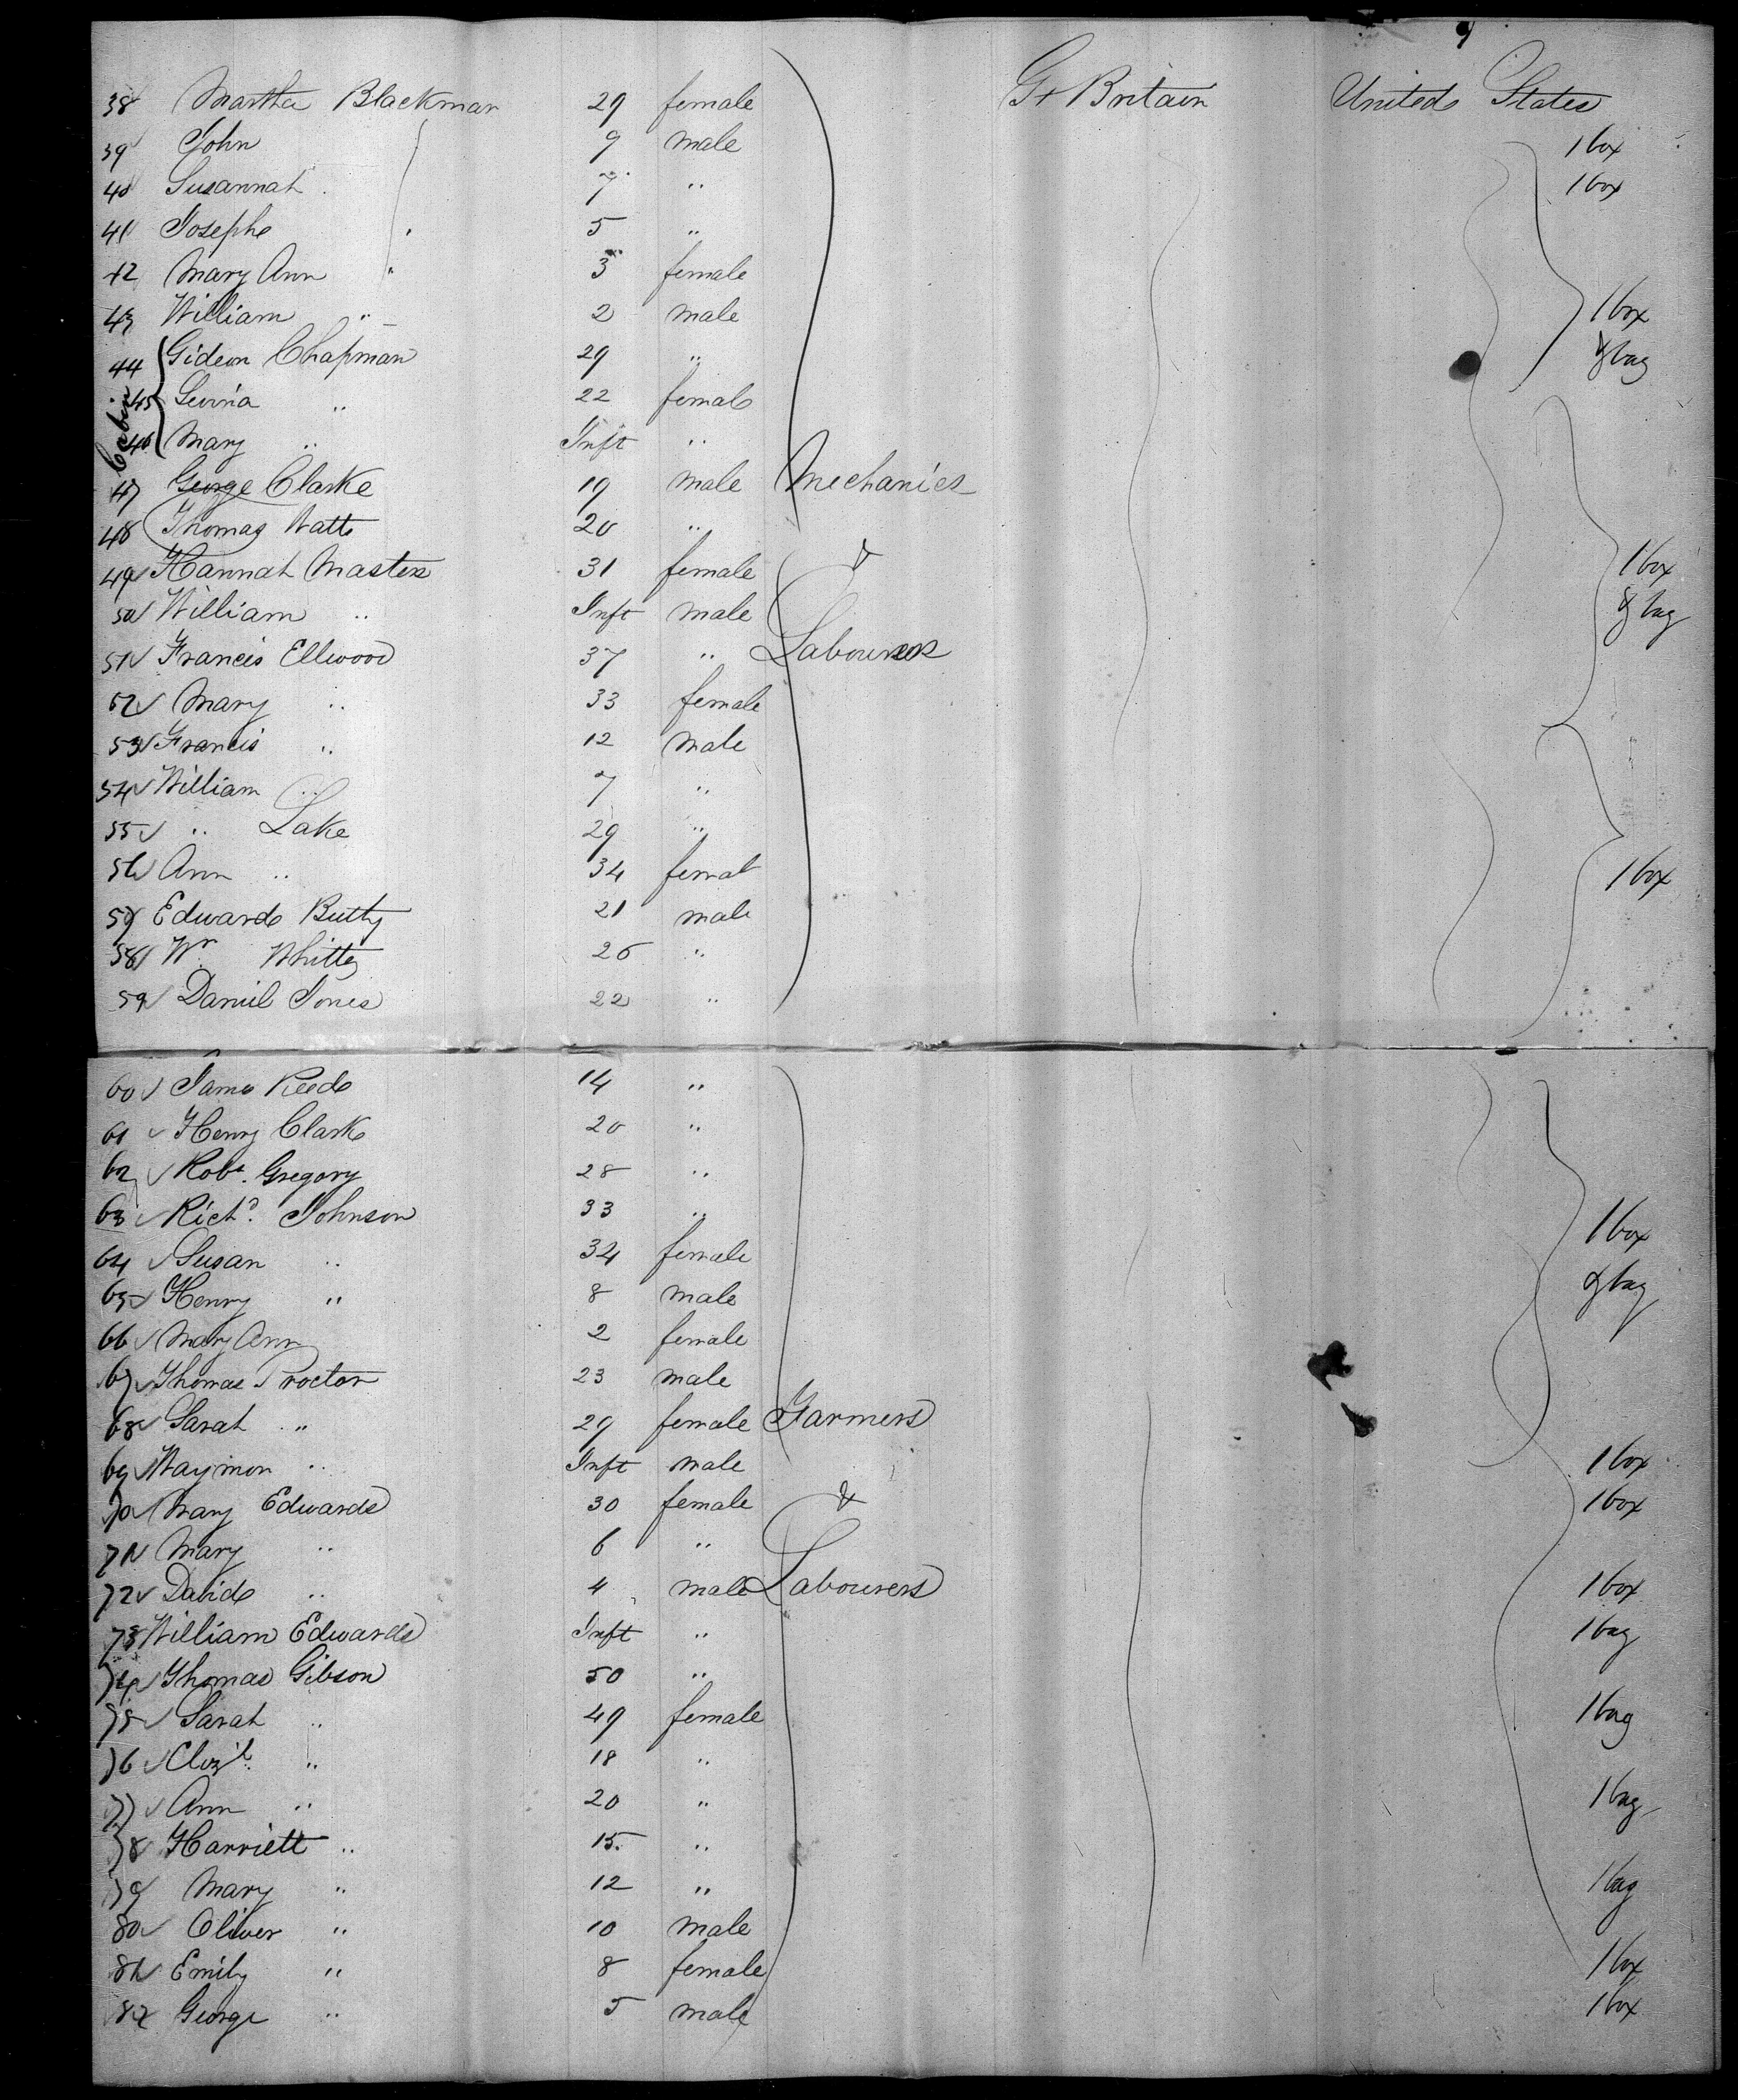 9
38 Martha Blackman 29 female Gt Britain United States
39 John 9 male 1 box
40 Susannah 7 " 1 box
41 Joseph " 5 "
42 Mary Ann " 3 female
43 William " 2 male 1 box
44 Gideon Chapman 29 " & bag
45 Levina " 22 female
Cabin
46 Mary " Inft "
47 George Clarke 19 male Mechanics
48 Thomas Watts 20 "
49 Hannah Masters 31 female & 1 box
50 William " Inft male & bag
51 Francis Ellwood 37 " Labourers
52 Mary " 33 female
53 Francis " 12 male
54 William " 7 "
55 " Lake 29 "
56 Ann " 34 femal 1 box
57 Edward Butty 21 male
58 Wm Whittey 26 "
59 Daniel Jones 22 "
60 James Reed 14 "
61 Henry Clark 20 "
62 Robt. Gregory 28 "
63 Richd. Johnson 33 " 1 box
64 Susan " 34 female
65 Henry " 8 male & bag
66 Mary Ann 2 female
67 Thomas Proctor 23 male
68 Sarah " 29 female Farmers
69 Waymon " Inft male 1 box
70 Mary Edwards 30 female & 1 box
71 Mary " 6 "
72 David " 4 male Labourers 1 box
73 William Edwards Inft " 1 bag
74 Thomas Gibson 50 "
75 Sarah " 49 female 1 bag
76 Elizth. " 18 "
77 Ann " 20 " 1 bag
78 Harriett " 15. "
79 Mary " 12 " 1 bag
80 Oliver " 10 male
81 Emily " 8 female 1 box
82 George " 5 male 1 box